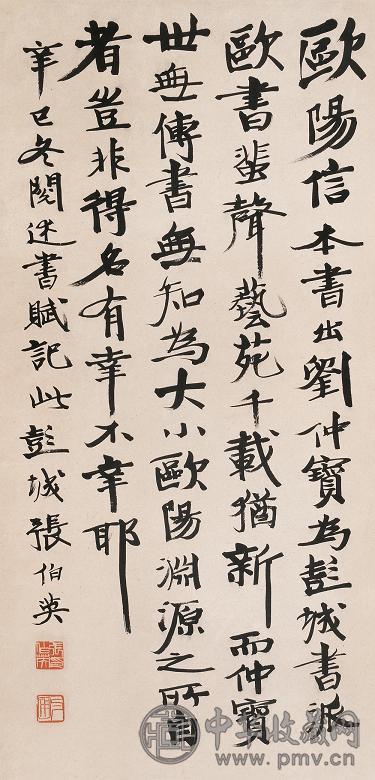 歐陽信本書出劉仲寶為彭城書派
歐書蜚聲藝苑千載猶新而仲寶
世無傳書無知為大小歐陽淵源之所自
者豈非得名有幸不幸耶
辛巳冬閱述書賦記此彭城張伯英
中寶收藏网
www.pmv.cn